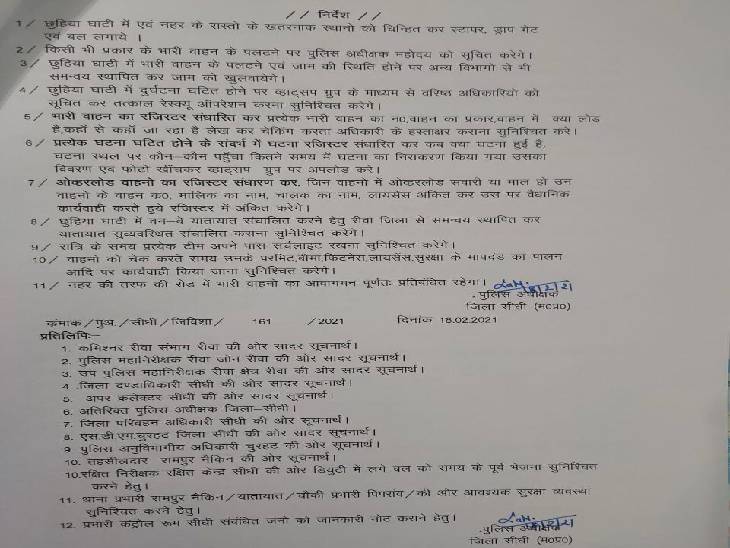 // निर्देश //
1/ छुहिया घाटी में एवं नहर के रास्तो के खतरनाक स्थानो को चिन्हित कर स्टापर, ड्राप गेट
एवं बल लगाये ।
2/ किसी भी प्रकार के भारी वाहन के पलटने पर पुलिस अधीक्षक महोदय को सूचित करेगे।
3/ छुहिया घाटी में भारी वाहन के पलटने एवं जाम की स्थिति होने पर अन्य विभागो से भी
समन्वय स्थापित कर जाम को खुलवायेगे।
4/ छुहिया घाटी में दुर्घटना घटित होने पर व्हाट्सप ग्रुप के माध्यम से वरिष्ठ अधिकारियो को
सूचित कर तत्काल रेस्क्यू ऑपरेशन करना सुनिश्चित करेगे।
5/ भारी वाहन का रजिस्टर संधारित कर प्रत्येक भारी वाहन का न0,वाहन का प्रकार,वाहन में क्या लोड
है,कहाँ से कहाँ जा रहा है लेख कर चेकिंग करता अधिकारी के हस्ताक्षर कराना सुनिश्चित करे।
6/ प्रत्येक घटना घटित होने के संदर्भ में घटना रजिस्टर संधारित कर कब क्या घटना हुई है,
घटना स्थल पर कौन-कौन पहुँचा कितने समय में घटना का निराकरण किया गया उसका
विवरण एवं फोटो खींचकर व्हाट्सप ग्रुप पर अपलोड करे।
7/ ओव्हरलोड वाहनो का रजिस्टर संधारण कर, जिन वाहनो में ओव्हरलोड सवारी या माल हो उन
वाहनो के वाहन क0, मालिक का नाम, चालक का नाम, लायसेंस अंकित कर उस पर वैधानिक
कार्यवाही करते हुये रजिस्टर में अंकित करेगे।
8/ छुहिया घाटी में वन-वे यातायात संचालित करने हेतु रीवा जिला से समन्वय स्थापित कर
यातायात सुव्यवस्थित संचालित कराना सुनिश्चित करेगे।
9/ रात्रि के समय प्रत्येक टीम अपने पास सर्चलाइट रखना सुनिश्चित करेगे।
10/ वाहनो को चेक करते समय उनके परमिट,बीमा,फिटनेस,लायसेंस,सुरक्षा के मापदंड का पालन
आदि पर कार्यवाही किया जाना सुनिश्चित करेगे।
11/ नहर की तरफ की रोड में भारी वाहनो का आवागमन पूर्णतः प्रतिबंधित रहेगा।
पुलिस अधीक्षक
जिला सीधी (म0प्र0)
क्रमांक/पुअ./सीधी/जिविशा/ 161 /2021 दिनांक 18.02.2021
प्रतिलिपिः-
1. कमिश्नर रीवा संभाग रीवा की ओर सादर सूचनार्थ।
2. पुलिस महानिरीक्षक रीवा जोन रीवा की ओर सादर सूचनार्थ।
3. उप पुलिस महानिरीक्षक रीवा क्षेत्र रीवा की ओर सादर सूचनार्थ।
4. जिला दण्डाधिकारी सीधी की ओर सादर सूचनार्थ।
5. अपर कलेक्टर सीधी की ओर सादर सूचनार्थ।
6. अतिरिक्त पुलिस अधीक्षक जिला-सीधी।
7. जिला परिवहन अधिकारी सीधी की ओर सूचनार्थ।
8. एस.डी.एम.चुरहट जिला सीधी की ओर सादर सूचनार्थ।
9 पुलिस अनुविभागीय अधिकारी चुरहट की ओर सूचनार्थ।
10. तहसीलदार रामपुर नैकिन की ओर सूचनार्थ।
10.रक्षित निरीक्षक रक्षित केन्द्र सीधी की ओर डियुटी में लगे बल को समय के पूर्व भेजना सुनिश्चित
करने हेतु।
11. थाना प्रभारी रामपुर नैकिन/यातायात/चौकी प्रभारी पिपरांव/की ओर आवश्यक सुरक्षा व्यवस्था
सुनिश्चित करने हेतु।
12. प्रभारी कंट्रोल रूम सीधी संबंधित जनो को जानकारी नोट कराने हेतु।
पुलिस अधीक्षक
जिला सीधी (म0प्र0)